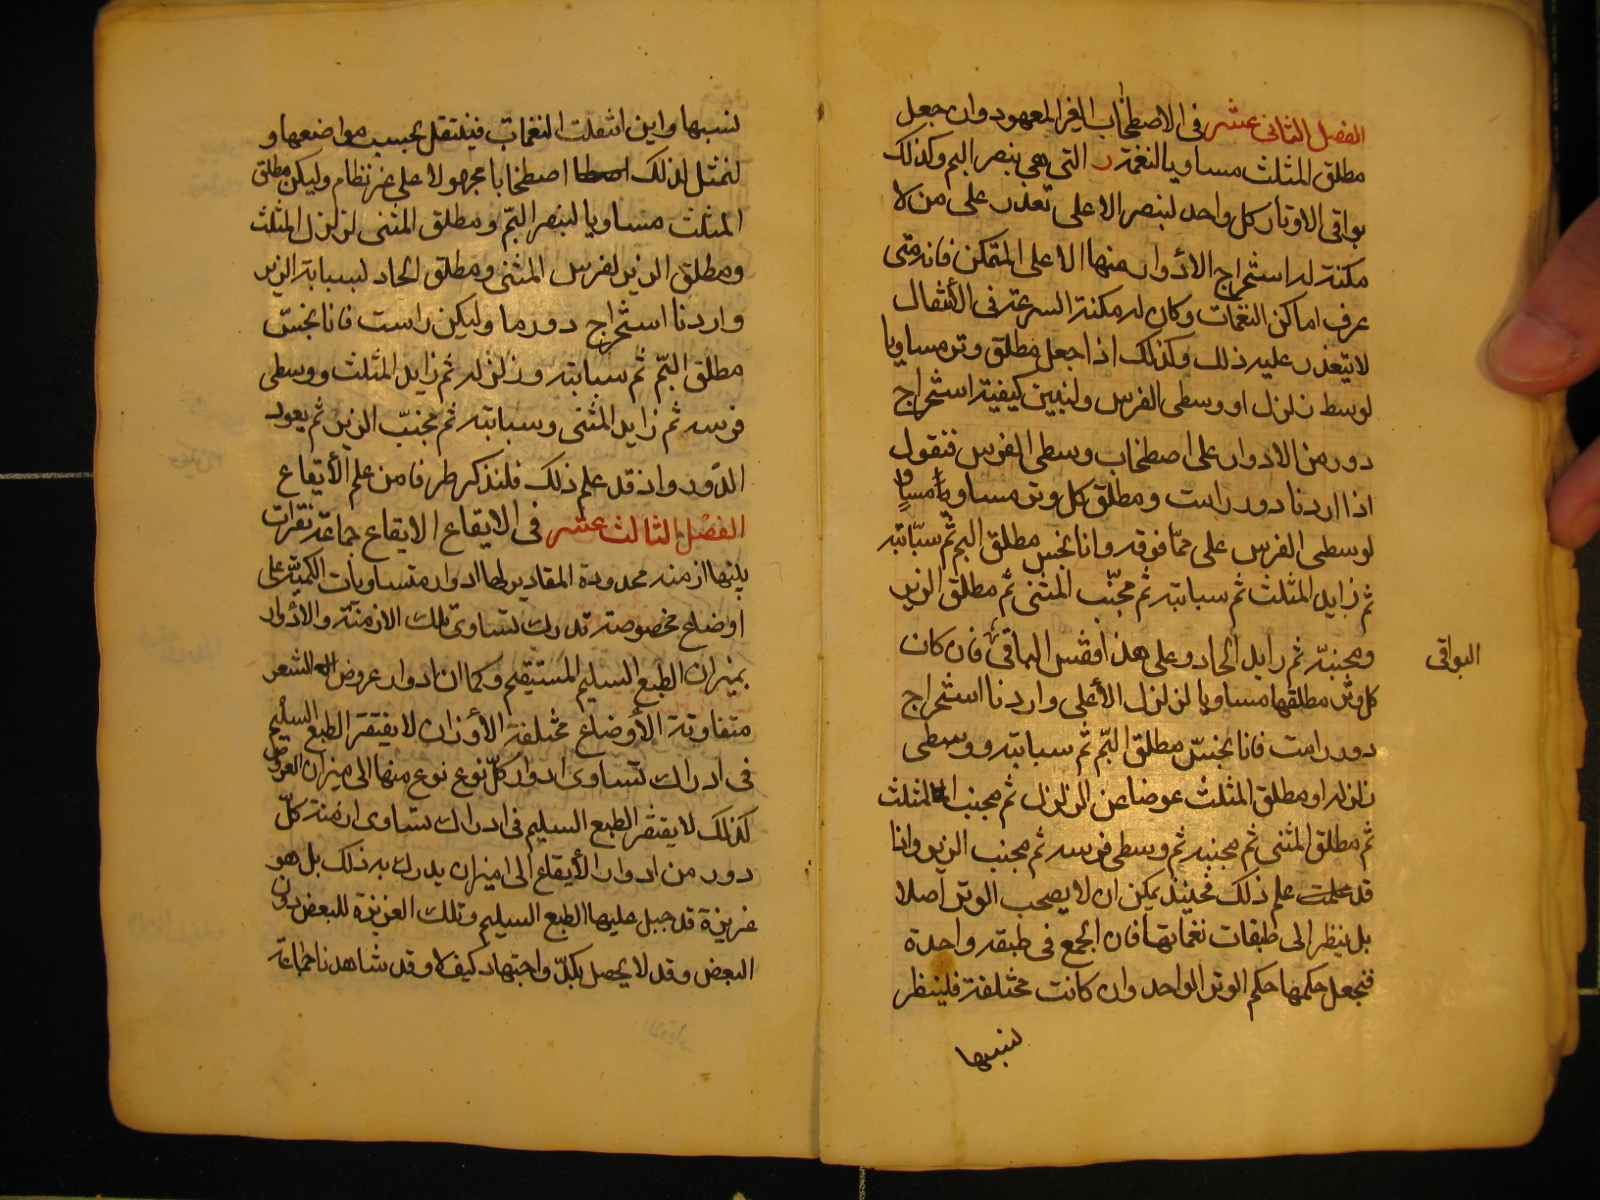 الفصل الثانى عشر فى الاصطخاب الغير المعهود وان جعل
مطلق المثلث مساويا لنغمة ر التى هى بنصر البم وكذلك
بواقى الاوتار كل واحد لبنصر الاعلى تعذر على من لا
مكنة له استخراج الأدوار منها الا على المتمكن فانه متى
عرف اماكن النغمات وكان له مكنة السرعة فى الأنتقال
لا يتعذر عليه ذلك وكذلك اذا جعل مطلق وتر مساويا
لوسط زلزل او وسطى الفرس ولنبين كيفية استخراج
دور من الادوار على اصطخاب وسطى الفرس فنقول
اذا اردنا دور راست ومطلق كل وتر مساويا مساوٍ
لوسطى الفرس على ممّا فوقه وانا نجس مطلق البم ثم سبّابته
ثم زايد المثلث ثم سبابته ثم مجنّب المثنى ثم مطلق الزير
ومجنبه ثم زايد الحاد وعلى هذا فقس الباقى فان كان
البواقى
كل وتر مطلقها مساويا لزلزل الأعلى واردنا استخراج
دور راست فانا نجسّ مطلق البّم ثم سبابته ووسطى
زلزله او مطلق المثلث عوضا عن الزلزل ثم مجنب المثلث
ثم مطلق المثنى ثم مجنبه ثم وسطى فرسه ثم مجنب الزير وانا
قد علمت علم ذلك فحينئذ يمكن ان لا يصحب الوتر اصلا
بل ينظر الى طبقات نغماتها فان الجمع فى طبقه واحدة
فنجعل حكمها حكم الوتر الواحد وان كانت مختلفة فلينظر
لنسبها
لنسبها واين انتقلت النغمات فينتقل بحسب مواضعها و
لنمثل لذلك اصطخابا مجهولا على غير نظام وليكن مطلق
المثلث مساويا لبنصر البّم ومطلق المثنى لزلزل المثلث
ومطلق الزير لفرس المثنى ومطلق الحاد لسبابة الزير
واردنا استخراج دور ما وليكن راست فانا نجسّ
مطلق البّم ثم سبابته وزلزله ثم زايد المثلث ووسطى
فرسه ثم زايد المثنى وسبابته ثم مجنّب الزير ثم يعود
الدّور واذ قد علم ذلك فلنذكر طرفا من علم الأيقاع
الفصل الثالث عشر فى الايقاع الايقاع جماعة نقرات
بينها ازمنه محدودة المقادير لها ادوار متساويات الكميّة على
اوضاع مخصوصة تدرك تساوى تلك الازمنة والأدوار
بميزان الطبع السليم المستقيم وكما ان ادوار عروض الشعر
متفاوتة الأوضاع مختلفة الأوزان لا يفتقر الطبع السليم
فى ادراك تساوى ادوار كلّ نوع نوع منها الى ميزان العروض
كذلك لا يفتقر الطبع السليم فى ادراك تساوى ازمنة كلّ
دور من ادوار الأيقاع الى ميزان يدرك به ذلك بل هو
غريزة قد جبل عليها الطبع السليم وتلك الغريزة للبعض دون
البعض وقد لا يحصل بكدّ واجتهاد كيف لا وقد شاهدنا جماعة